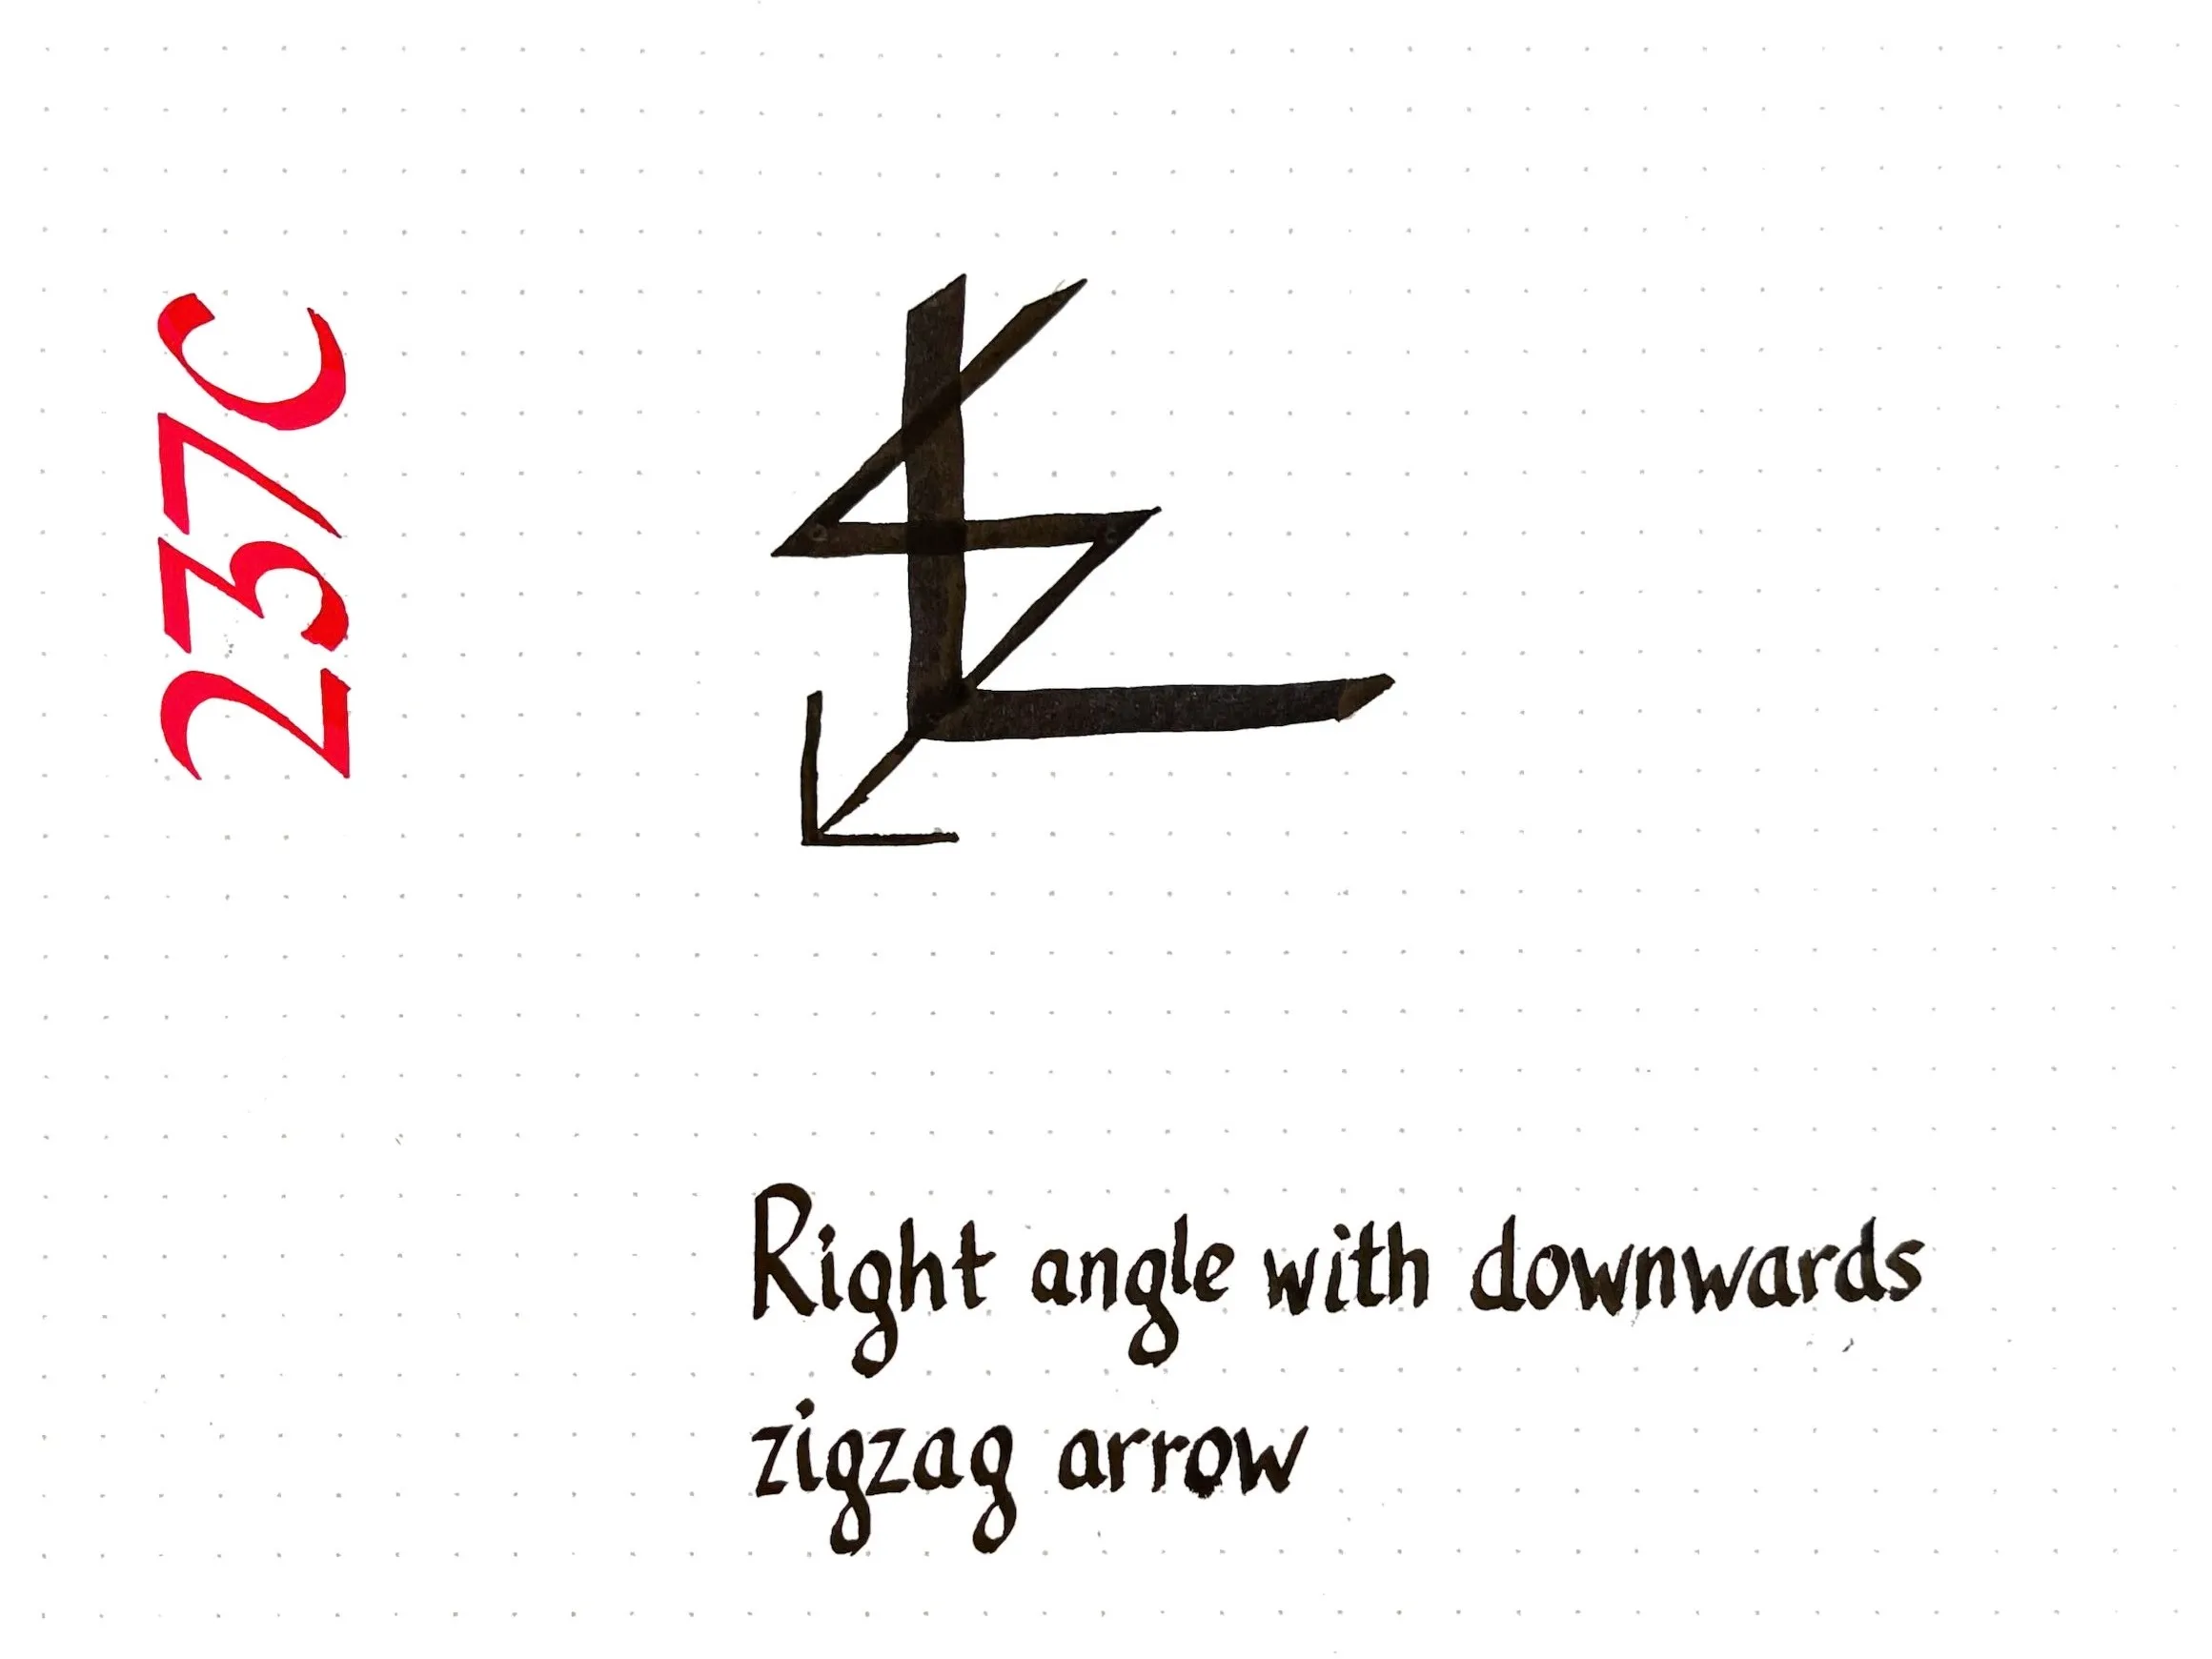 237C
Right angle with downwards
zigzag arrow